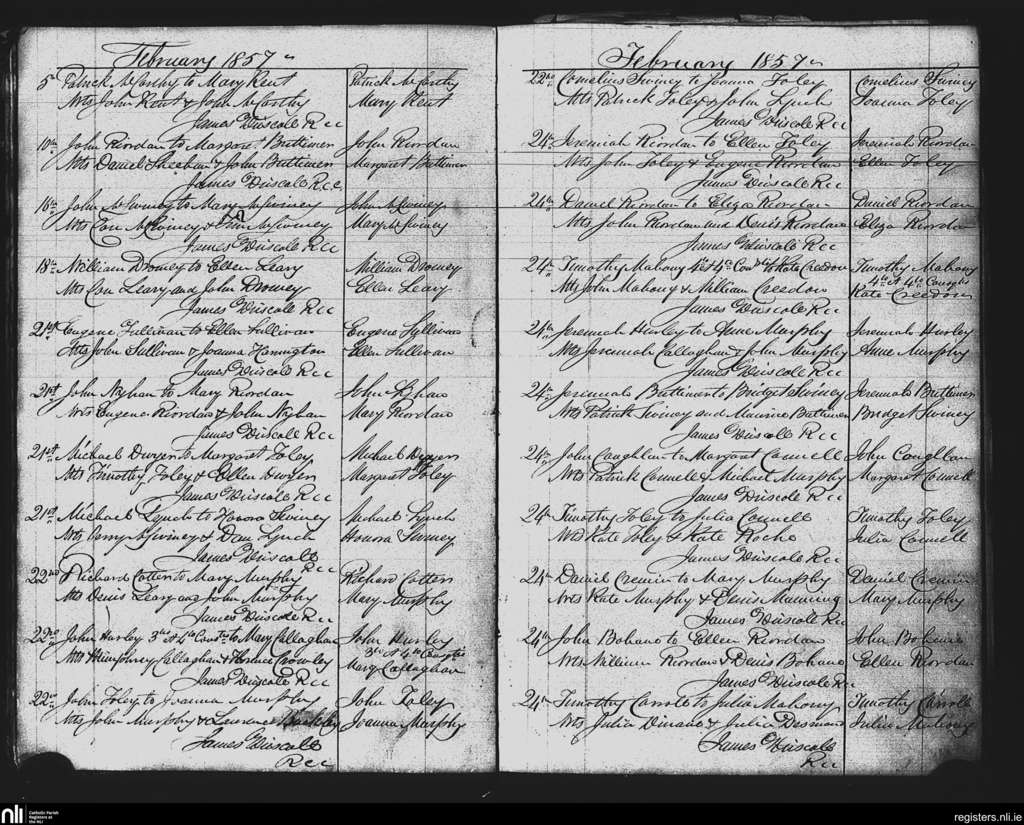 February 1857
5th Patrick McCarthy to Mary Kent Patrick McCarthy
Wts John Kent & John McCarthy Mary Kent
James Driscoll Rcc
10th John Riordan to Margaret Buttimer John Riordan
Wts Daniel Sheehan & John Buttimer Margaret Buttimer
James Driscoll Rcc
16th John McSwiney to Mary McSwiney John McSwiney
Wts Con McSwiney & McSwiney Mary McSwiney
James Driscoll Rcc
18th William Dromey to Ellen Leary William Dromey
Wts Con Leary and John Dromey Ellen Leary
James Driscoll Rcc
21st Eugene Sullivan to Ellen Sullivan Eugene Sullivan
Wts John Sullivan & Joanna Harrington Ellen Sullivan
James Driscoll Rcc
21st John Nyhan to Mary Riordan John Nyhan
Wts Eugene Riordan & John Nyhan Mary Riordan
James Driscoll Rcc
21st Michael Dwyer to Margaret Foley Michael Dwyer
Wts Timothy Foley & Ellen Dwyer Margaret Foley
James Driscoll Rcc
21st Michael Lynch to Honora Swiney Michael Lynch
Wts McSwiney & Dan Lynch Honora Swiney
James Driscoll Rcc
22nd Richard Cotter to Mary Murphy Richard Cotter
Wts Denis Leary and John Murphy Mary Murphy
James Driscoll Rcc
22nd John Hurley 3rd & 4th to Mary Callaghan John Hurley
3rd & 4th
Wts Humphrey Callaghan & Florence Crowley Mary Callaghan
James Driscoll Rcc
22nd John Foley to Joanna Murphy John Foley
Wts John Murphy & Laurence Joanna Murphy
James Driscoll
Rcc
February 1857
22nd Cornelius Swiney to Joanna Foley Cornelius Swiney
Wts Patrick Foley & John Lynch Joanna Foley
James Driscoll Rcc
24th Jeremiah Riordan to Ellen Foley Jeremiah Riordan
Wts John Foley & Eugene Riordan Ellen Foley
James Driscoll Rcc
24th Daniel Riordan to Eliza Riordan Daniel Riordan
Wts John Riordan and Denis Riordan Eliza Riordan
James Driscoll Rcc
24th Timothy Mahony 4th & 4th to Kate Creedon Timothy Mahony
4th & 4th
Wts John Mahony & William Creedon Kate Creedon
James Driscoll Rcc
24th Jeremiah Hurley to Anne Murphy Jeremiah Hurley
Wts Jeremiah Callaghan & John Murphy Anne Murphy
James Driscoll Rcc
24th Jeremiah Buttimer to Bridget Swiney Jeremiah Buttimer
Wts Patrick Swiney and Maurice Buttimer Bridget Swiney
James Driscoll Rcc
24th John Coughlan to Margaret Connell John Coughlan
Wts Patrick Connell & Michael Murphy Margaret Connell
James Driscoll Rcc
24th Timothy Foley to Julia Connell Timothy Foley
Wts Kate Foley & Kate Roche Julia Connell
James Driscoll Rcc
24th Daniel Cremin to Mary Murphy Daniel Cremin
Wts Kate Murphy & Denis Manning Mary Murphy
James Driscoll Rcc
24th John Bohane to Ellen Riordan John Bohane
Wts William Riordan & Denis Bohane Ellen Riordan
James Driscoll Rcc
24th Timothy Carroll to Julia Mahony Timothy Carroll
Wts Julia Dinane & Julia Desmond Julia Mahony
James Driscoll
Rcc
nli
Catholic Parish
Registers at
the NLI
registers.nli.ie